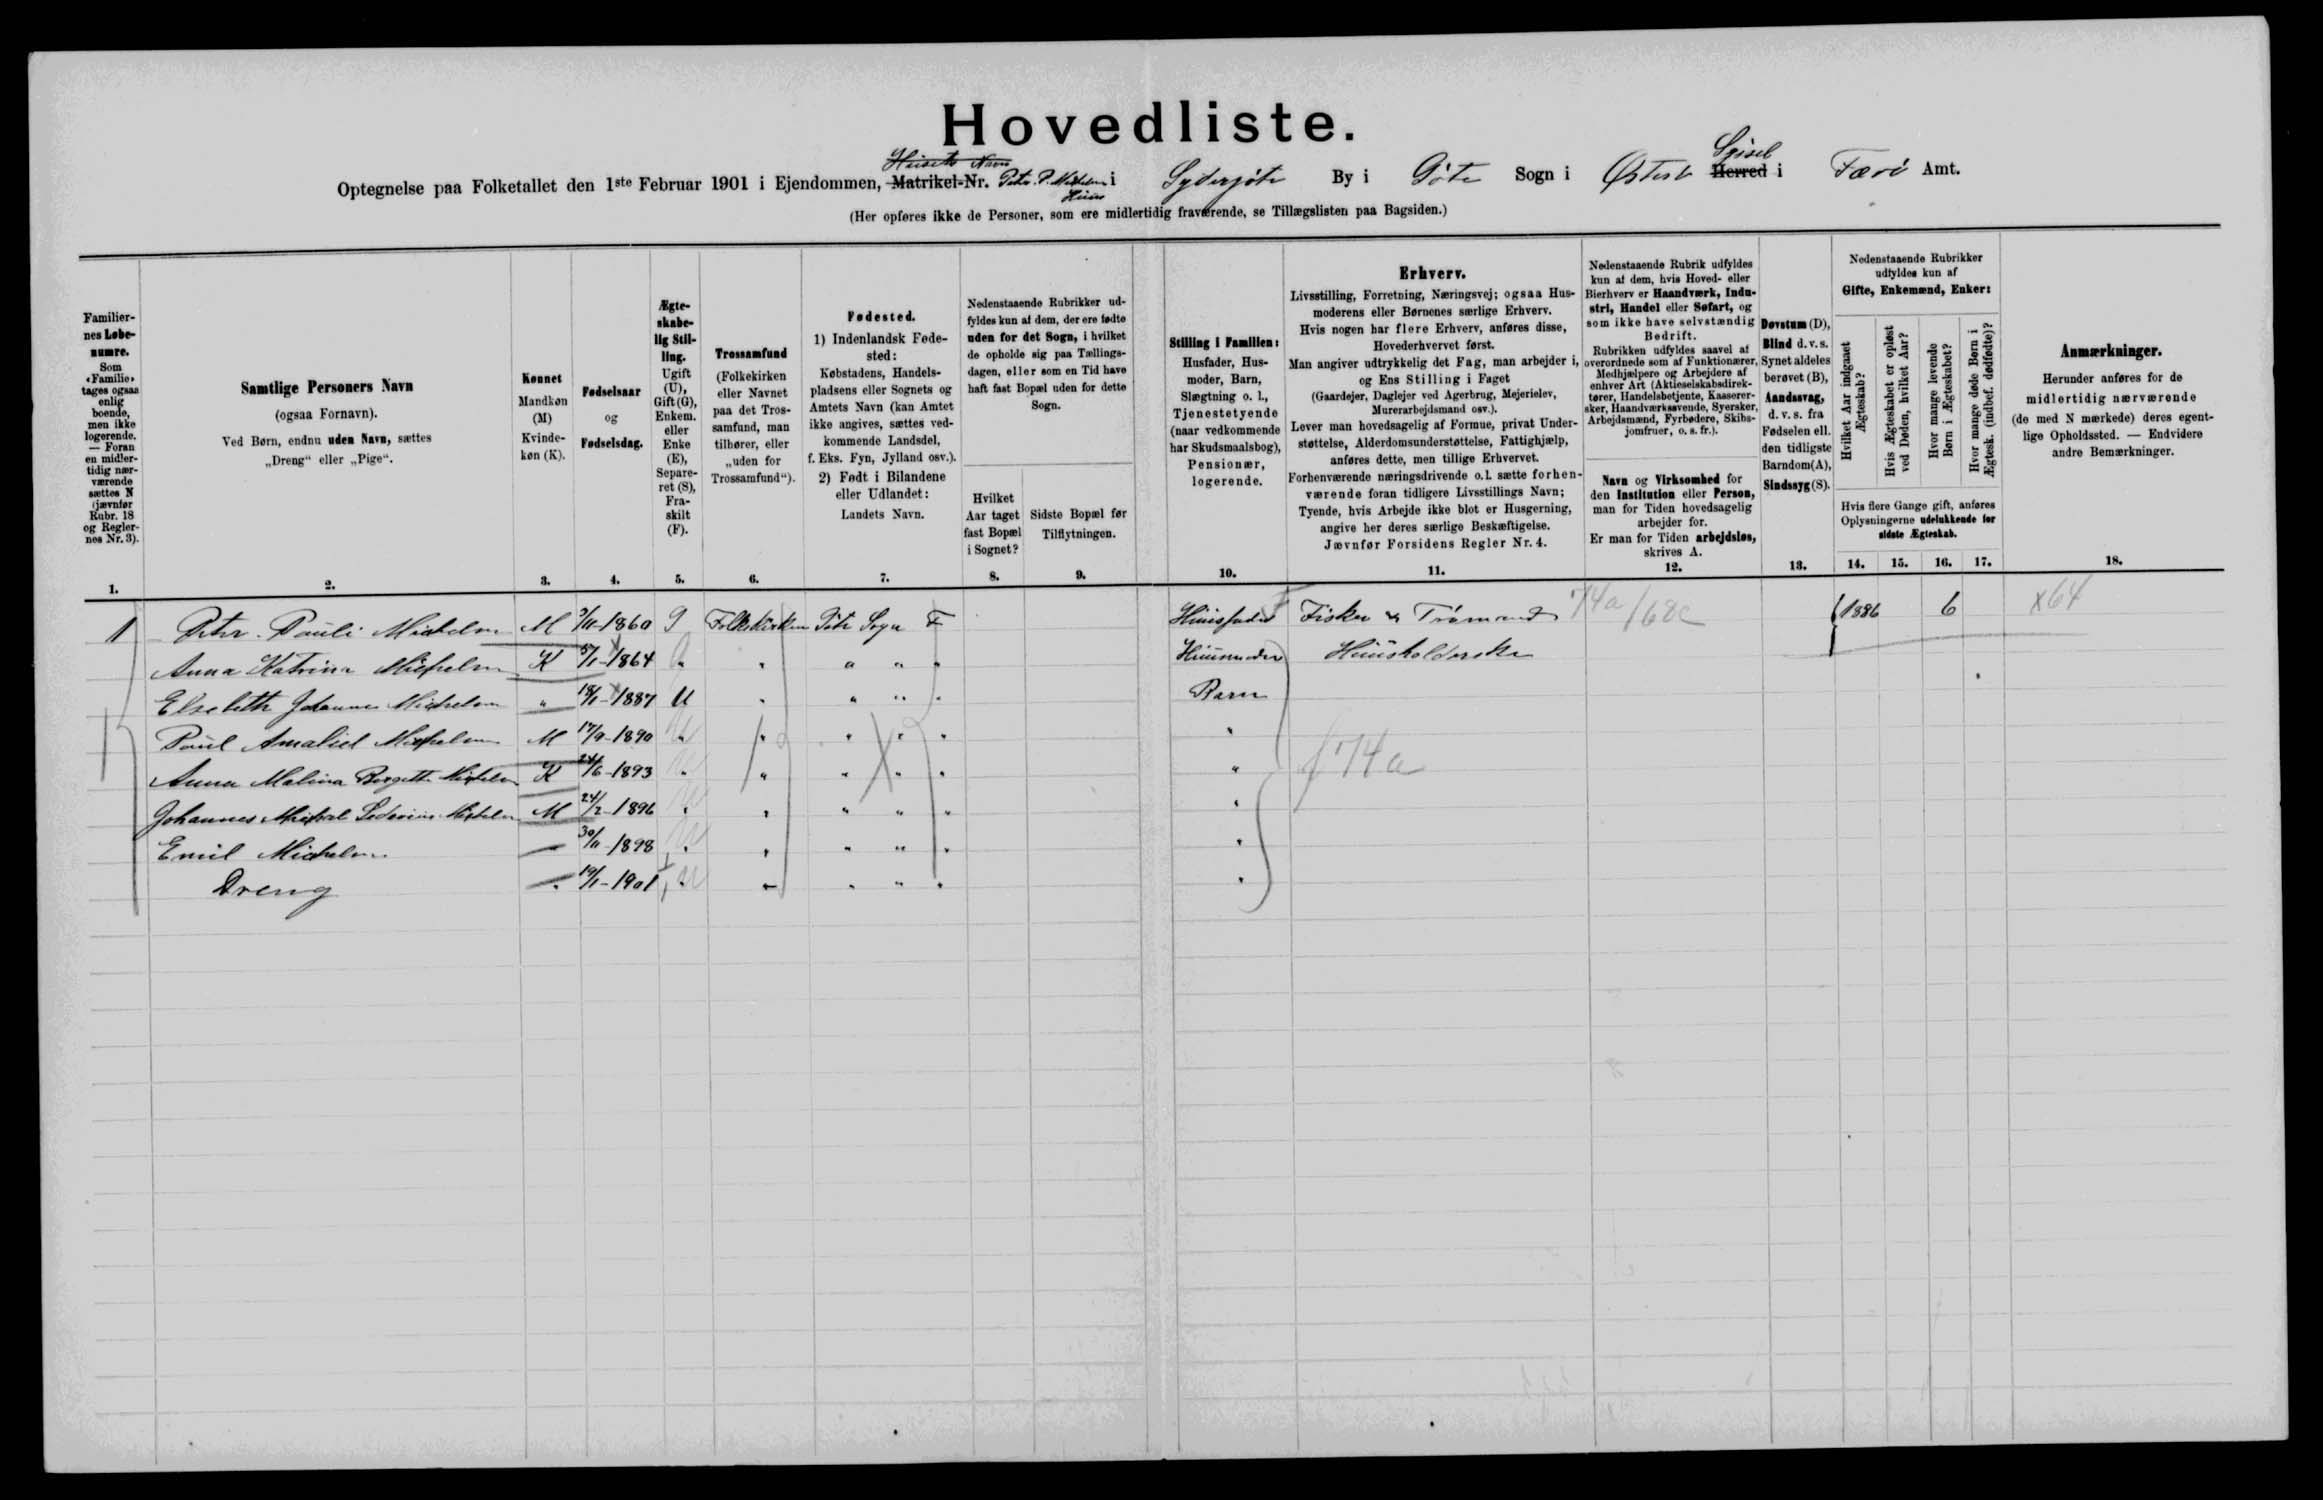 Hovedliste.
Husets Navn Sysel
Optegnelse paa Folketallet den 1ste Februar 1901 i Ejendommen, Matrikel-Nr. Peter P. Michelsens Huus i Sydergöte By i Göte Sogn i Österö Herred i Færö Amt.
(Her opføres ikke de Personer, som ere midlertidig fraværende, se Tillægslisten paa Bagsiden.)
Familiernes Løbenumre.
Som «Familie» tages ogsaa enlig boende, men ikke logerende. — Foran en midlertidig nærværende sættes N (jævnfør Rubr. 18 og Reglernes Nr. 3).
Samtlige Personers Navn
(ogsaa Fornavn).
Ved Børn, endnu uden Navn, sættes
„Dreng“ eller „Pige“.
Kønnet
Mandkøn
(M)
Kvinde-
køn (K).
Fødselsaar
og
Fødselsdag.
Ægte-
skabe-
lig Stil-
ling.
Ugift
(U),
Gift (G),
Enkem.
eller
Enke
(E),
Separe-
ret (S),
Fra-
skilt
(F).
Trossamfund
(Folkekirken
eller Navnet
paa det Tros-
samfund, man
tilhører, eller
„uden for
Trossamfund“).
Fødested.
1) Indenlandsk Føde-
sted:
Købstadens, Handels-
pladsens eller Sognets og
Amtets Navn (kan Amtet
ikke angives, sættes ved-
kommende Landsdel,
f. Eks. Fyn, Jylland osv.).
2) Født i Bilandene
eller Udlandet:
Landets Navn.
Nedenstaaende Rubrikker ud-
fyldes kun af dem, der ere fødte
uden for det Sogn, i hvilket
de opholde sig paa Tællings-
dagen, eller som en Tid have
haft fast Bopæl uden for dette
Sogn.
Hvilket
Aar taget
fast Bopæl
i Sognet?
Sidste Bopæl før
Tilflytningen.
Stilling i Familien:
Husfader, Hus-
moder, Barn,
Slægtning o. l.,
Tjenestetyende
(naar vedkommende
har Skudsmaalsbog),
Pensionær,
logerende.
Erhverv.
Livsstilling, Forretning, Næringsvej; ogsaa Hus-
moderens eller Børnenes særlige Erhverv.
Hvis nogen har flere Erhverv, anføres disse,
Hovederhvervet først.
Man angiver udtrykkelig det Fag, man arbejder i,
og Ens Stilling i Faget
(Gaardejer, Daglejer ved Agerbrug, Mejerielev,
Murerarbejdsmand osv.).
Lever man hovedsagelig af Formue, privat Under-
støttelse, Alderdomsunderstøttelse, Fattighjælp,
anføres dette, men tillige Erhvervet.
Forhenværende næringsdrivende o. l. sætte forhen-
værende foran tidligere Livsstillings Navn;
Tyende, hvis Arbejde ikke blot er Husgerning,
angive her deres særlige Beskæftigelse.
Jævnfør Forsidens Regler Nr. 4.
Nedenstaaende Rubrik udfyldes
kun af dem, hvis Hoved- eller
Bierhverv er Haandværk, Indu-
stri, Handel eller Søfart, og
som ikke have selvstændig
Bedrift.
Rubrikken udfyldes saavel af
overordnede som af Funktionærer,
Medhjælpere og Arbejdere af
enhver Art (Aktieselskabsdirek-
tører, Handelsbetjente, Kasserer-
sker, Haandværkssvende, Syersker,
Arbejdsmænd, Fyrbødere, Skibs-
jomfruer, o. s. fr.).
Navn og Virksomhed for
den Institution eller Person,
man for Tiden hovedsagelig
arbejder for.
Er man for Tiden arbejdsløs,
skrives A.
Døvstum (D),
Blind d. v. s.
Synet aldeles
berøvet (B),
Aandssvag,
d. v. s. fra
Fødselen ell.
den tidligste
Barndom (A),
Sindssyg (S).
Nedenstaaende Rubrikker
udfyldes kun af
Gifte, Enkemænd, Enker:
Hvilket Aar indgaaet Ægteskab?
Hvis Ægteskabet er opløst ved Døden, hvilket Aar?
Hvor mange levende Børn i Ægteskabet?
Hvor mange døde Børn i Ægtesk. (indbef. dødfødte)?
Hvis flere Gange gift, anføres
Oplysningerne udelukkende for
sidste Ægteskab.
Anmærkninger.
Herunder anføres for de
midlertidig nærværende
(de med N mærkede) deres egent-
lige Opholdssted. — Endvidere
andre Bemærkninger.
1. 2. 3. 4. 5. 6. 7. 8. 9. 10. 11. 12. 13. 14. 15. 16. 17. 18.
1 Peter Pauli Michelsen M 1860 G Folkekirken Göte Sogn F Huusfader Fisker & Tr... 74a/68c 1886 6 x64
Anna Katrina Michelsen K 1864 " " " " " Huusmoder Huusholderske
Elsebeth Johanne Michelsen " 18/1-1887 U " " " " Barn
Paul Amaliel Michelsen M 17/9-1890 " " " " " "
Anna Malina Birgitte Michelsen K 24/6-1893 " " " " " " 74a
Johannes Michael Michelsen M 24/2-1896 " " " " " "
Emil Michelsen " 30/11-1898 " " " " " "
Dreng " 19/1-1901 " " " " " "